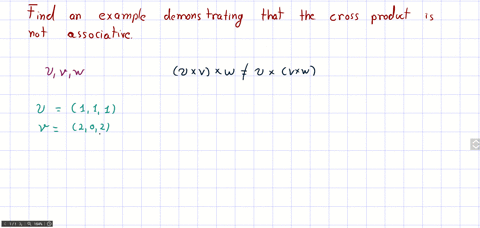 Find an example demonstrating that the cross product is
not associative.
υ, v, w (υ×v) × w ≠ υ × (v×w)
υ = (1, 1, 1)
v = (2, 0, 2)